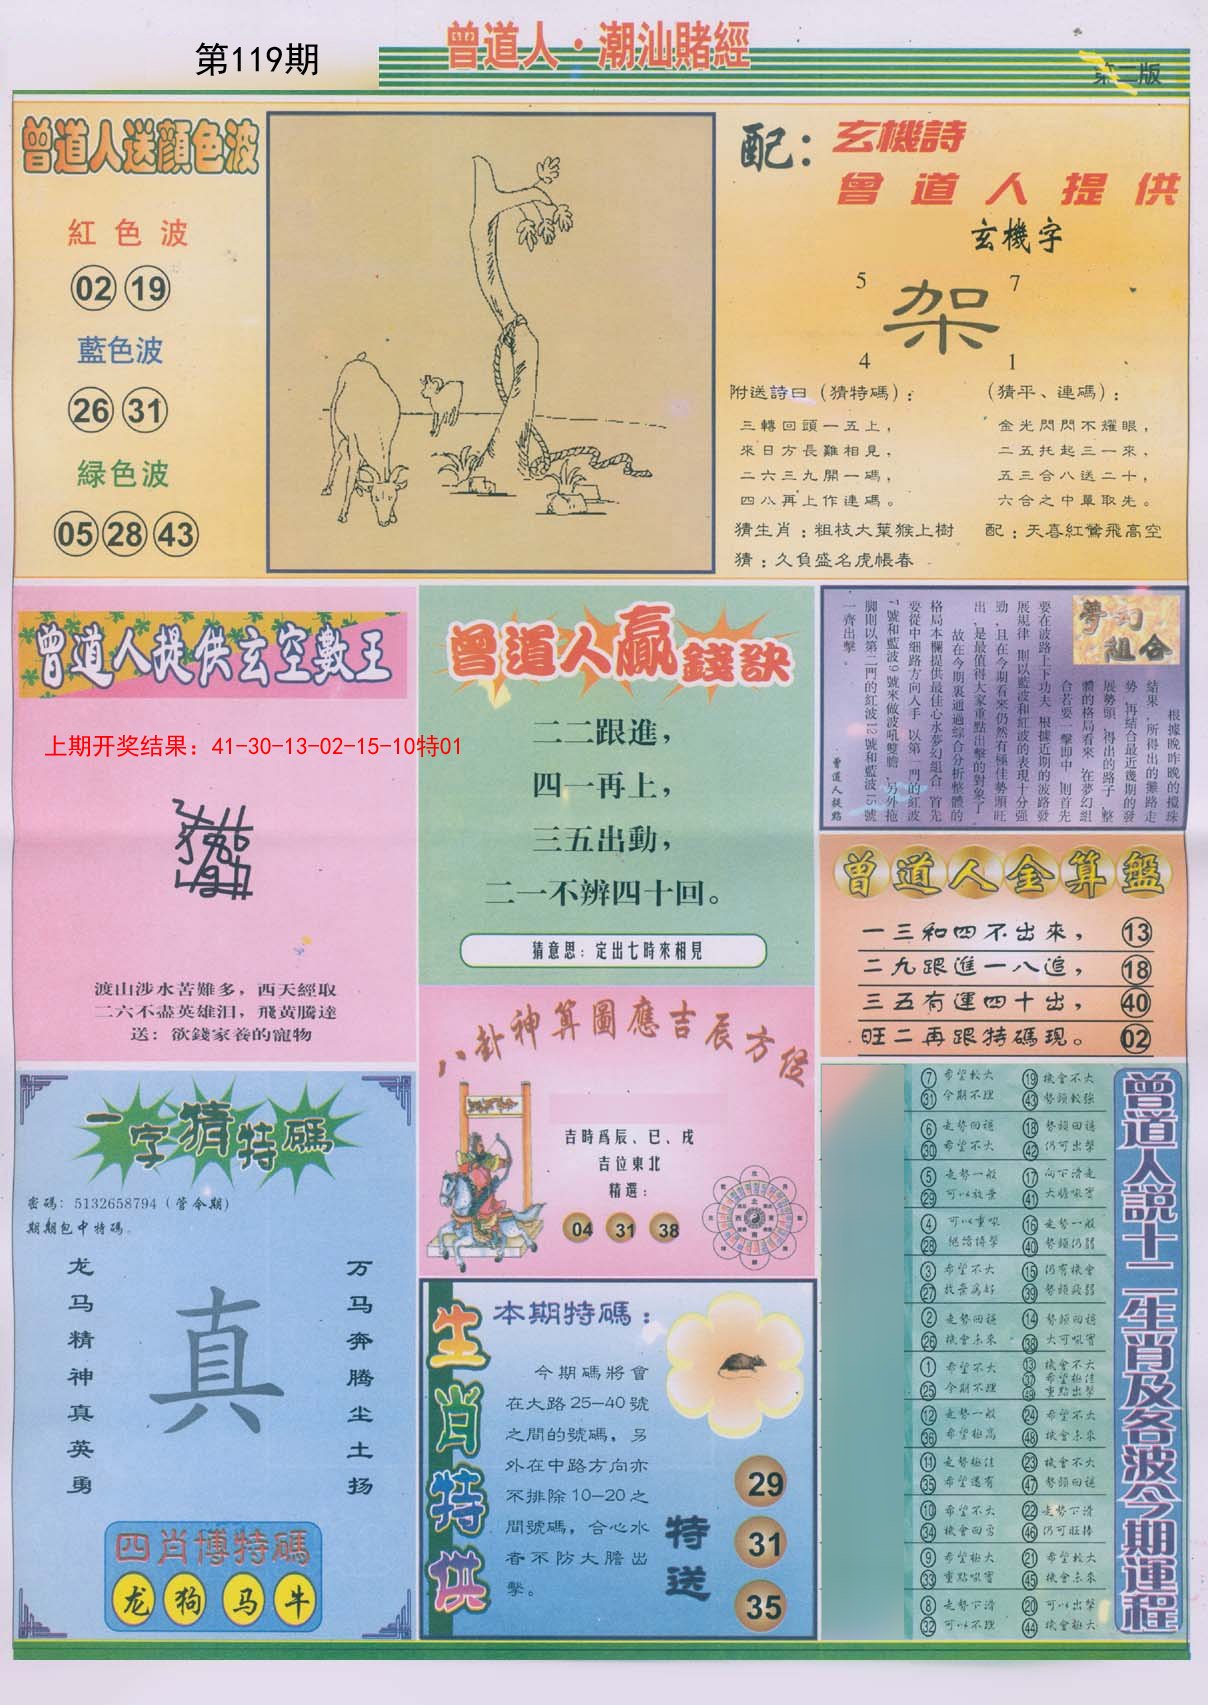 第119期
曾道人·潮汕賭經
第二版
曾道人送顔色波
紅色波
02 19
藍色波
26 31
緑色波
05 28 43
配：玄機詩
曾道人提供
玄機字
5 7
架
4 1
附送詩曰（猜特碼）：
三轉回頭一五上，
來日方長難相見，
二六三九開一碼，
四八再上作連碼。
（猜平、連碼）：
金光閃閃不耀眼，
二五托起三一來，
五三合八送二十，
六合之中單取先。
猜生肖：粗枝大葉猴上樹
配：天喜紅鶯飛高空
猜：久負盛名虎帳春
曾道人提供玄空數王
上期开奖结果：41-30-13-02-15-10特01
渡山涉水苦難多，西天經取
二六不盡英雄泪，飛黄騰達
送：欲錢家養的寵物
曾道人贏錢訣
二二跟進，
四一再上，
三五出動，
二一不辨四十回。
猜意思：定出七時來相見
夢幻
組合
根據晚昨晚的攪珠
結果，所得出的攤路走
勢，再結合最近幾期的發
展勢頭，得出的路子，整
體的格局看來，在夢幻組
合若要一擊即中，則首先
要在波路上下功夫，根據近期的波路發
展規律，則以藍波和紅波的表現十分强
勁，且在今期看來仍然有極佳勢頭旺
出，是最值得大家重點出擊的對象了
故在今期裏通過綜合分析整體的
格局本欄提供最佳心水夢幻組合，首先
要從中細路方向入手，以第一門的紅波
7號和藍波9號來做波吼雙膽，另外拖
脚則以第二門的紅波12號和藍波15號
一齊出擊。
曾道人提點
曾道人金算盤
一三和四不出來，13
二九跟進一八追，18
三五有運四十出，40
旺二再跟特碼現。02
八卦神算圖應吉辰方從
吉時爲辰、巳、戌
吉位東北
精選：
04 31 38
一字猜特碼
密碼：5132658794（管令期）
期期包中特碼。
龙马精神真英勇
真
万马奔腾尘土扬
四肖博特碼
龙 狗 马 牛
生肖特供
本期特碼：
今期碼將會
在大路25—40號
之間的號碼，另
外在中路方向亦
不排除10—20之
間號碼，合心水
者不防大膽出
擊。
特送
29
31
35
曾道人説十二生肖及各波今期運程
7 希望較大 19 機會不大
31 今期不理 43 勢頭較强
6 走勢回穩 18 勢頭回穩
30 希望不大 42 仍可出擊
5 走勢一般 17 向下滑走
29 可以放棄 41 大膽吼實
4 可以重吼 16 走勢一般
28 繼續博擊 40 勢頭仍弱
3 希望不大 15 仍有機會
27 放棄爲好 39 勢頭疲弱
2 走勢回穩 14 勢頭回穩
26 機會未來 38 大可吼實
1 希望不大 13 機會不大
25 今期不理 37 希望極佳
49 重點出擊
12 走勢一般 24 希望不大
36 希望極高 48 機會未來
11 走勢極佳 23 機會不大
35 希望還有 47 勢頭回穩
10 希望不大 22 走勢下滑
34 機會回多 46 仍可旺捧
9 希望極大 21 希望較大
33 重點吼實 45 機會未來
8 走勢下滑 20 可以出擊
32 可以不理 44 機會極大